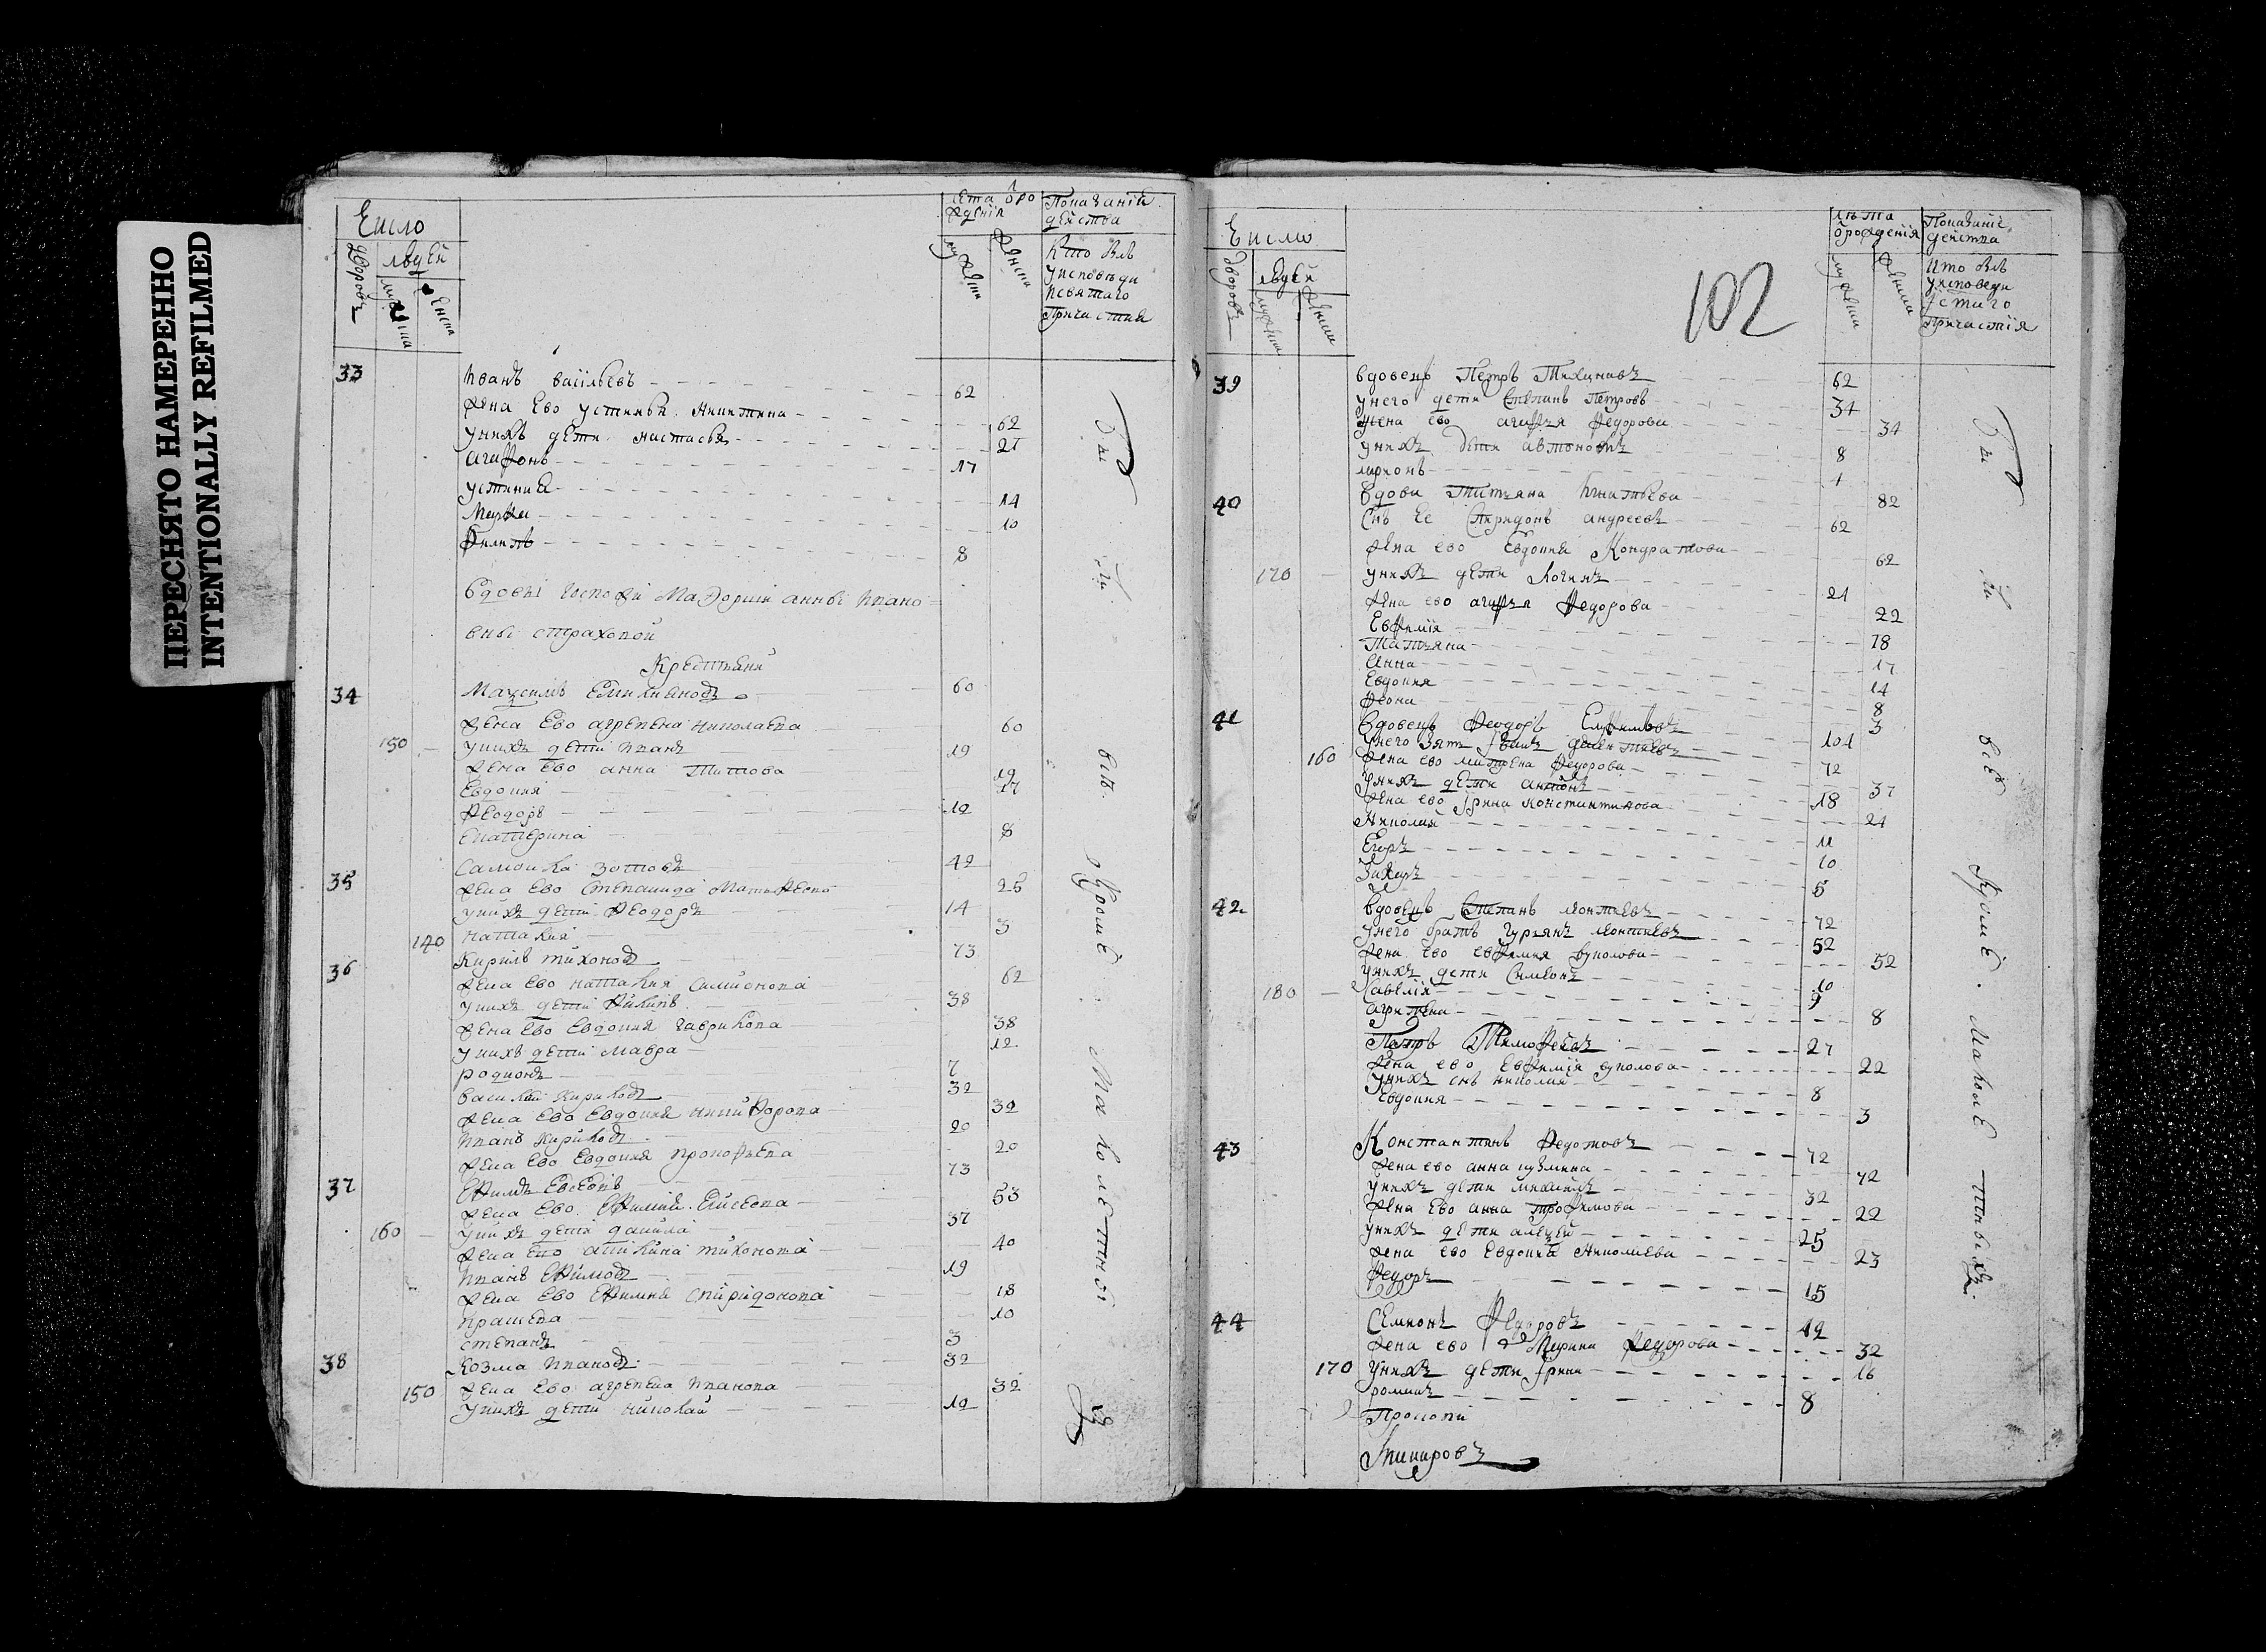 ПЕРЕСНЯТО НАМЕРЕННО
INTENTIONALLY REFILMED
Число
дворовъ
людей
мужеска
женска
лета о рождения
мужеска
женска
Показаній действа
кто былъ у исповеди и святаго причастия
33
иванъ васильевъ 62
жена ево устинья никитина 62
у нихъ дети настасья 21
агафонъ 17
устиниа 14
марфа 10
филипъ 8
вдовы госпожи маіорши анны ивано
вны страховой
крестьяне
34 60
жена ево агрепена николаева 60
150 у нихъ дети иванъ 19
жена ево анна титова 19
евдокия 17
феодоръ 12
екатерина 8
35 зотовъ 42
жена ево степанида матвѣева 25
у нихъ дети феодоръ 14
140 наталия 3
36 кирилъ тихоновъ 73
жена ево наталия симионова 62
у нихъ дети 38
жена ево евдокия гаврилова 38
у нихъ дети мавра 12
родионъ 7
василий кириловъ 32
жена ево евдокия никифорова 32
иванъ кириловъ 20
жена ево евдокия прокофьева 20
37 ефимъ 73
жена ево ефимия 53
160 у нихъ дети данила 37
жена ево акилина тихонова 40
иванъ ефимовъ 19
жена ево ефимия спиридонова 18
прасковья 10
степанъ 3
38 козма ивановъ 32
150 жена ево агрепена иванова 32
у нихъ дети николай 12
102
Число
дворовъ
людей
мужеска
женска
лѣта о рождения
мужеска
женска
Показание действа
кто былъ у исповеди и стаго причастія
39 вдовецъ Петръ 62
у него дети степанъ петровъ 34
жена ево агафья федорова 34
у нихъ дети автономъ 8
ларионъ 1
40 вдова татьяна игнатьева 82
снъ ее спиридонъ андреевъ 62
жена ево евдокия кондратова 62
170 у нихъ дети логинъ 21
жена ево агафья федорова 22
евфимія 18
татьяна 17
анна 14
евдокия 8
3
41 вдовецъ феодоръ 101
у него зять 72
160 жена ево матрена федорова 37
у нихъ дети антонъ 18
жена ево ирина константинова 21
николай 11
егоръ 10
захаръ 5
42 вдовецъ степанъ леонтьевъ 72
у него братъ гурьянъ леонтьевъ 52
жена ево евфимия вуколова 52
у нихъ дети симеонъ 10
180 савелія 9
агрипена 8
Петръ Тимофеевъ 27
жена ево евфимія вуколова 22
у нихъ снъ николай 8
евдокия 3
43 Константинъ федотовъ 72
жена ево анна кузмина 72
у нихъ дети михаилъ 32
жена ево анна трофимова 22
у нихъ дети алеξей 25
жена ево евдокия николаева 23
федоръ 15
44 Семионъ федоровъ 42
жена ево марина федорова 32
170 у нихъ дети ирина 16
романъ 8
Прокопи
Кроме малолетныхъ
все Кроме малолетныхъ